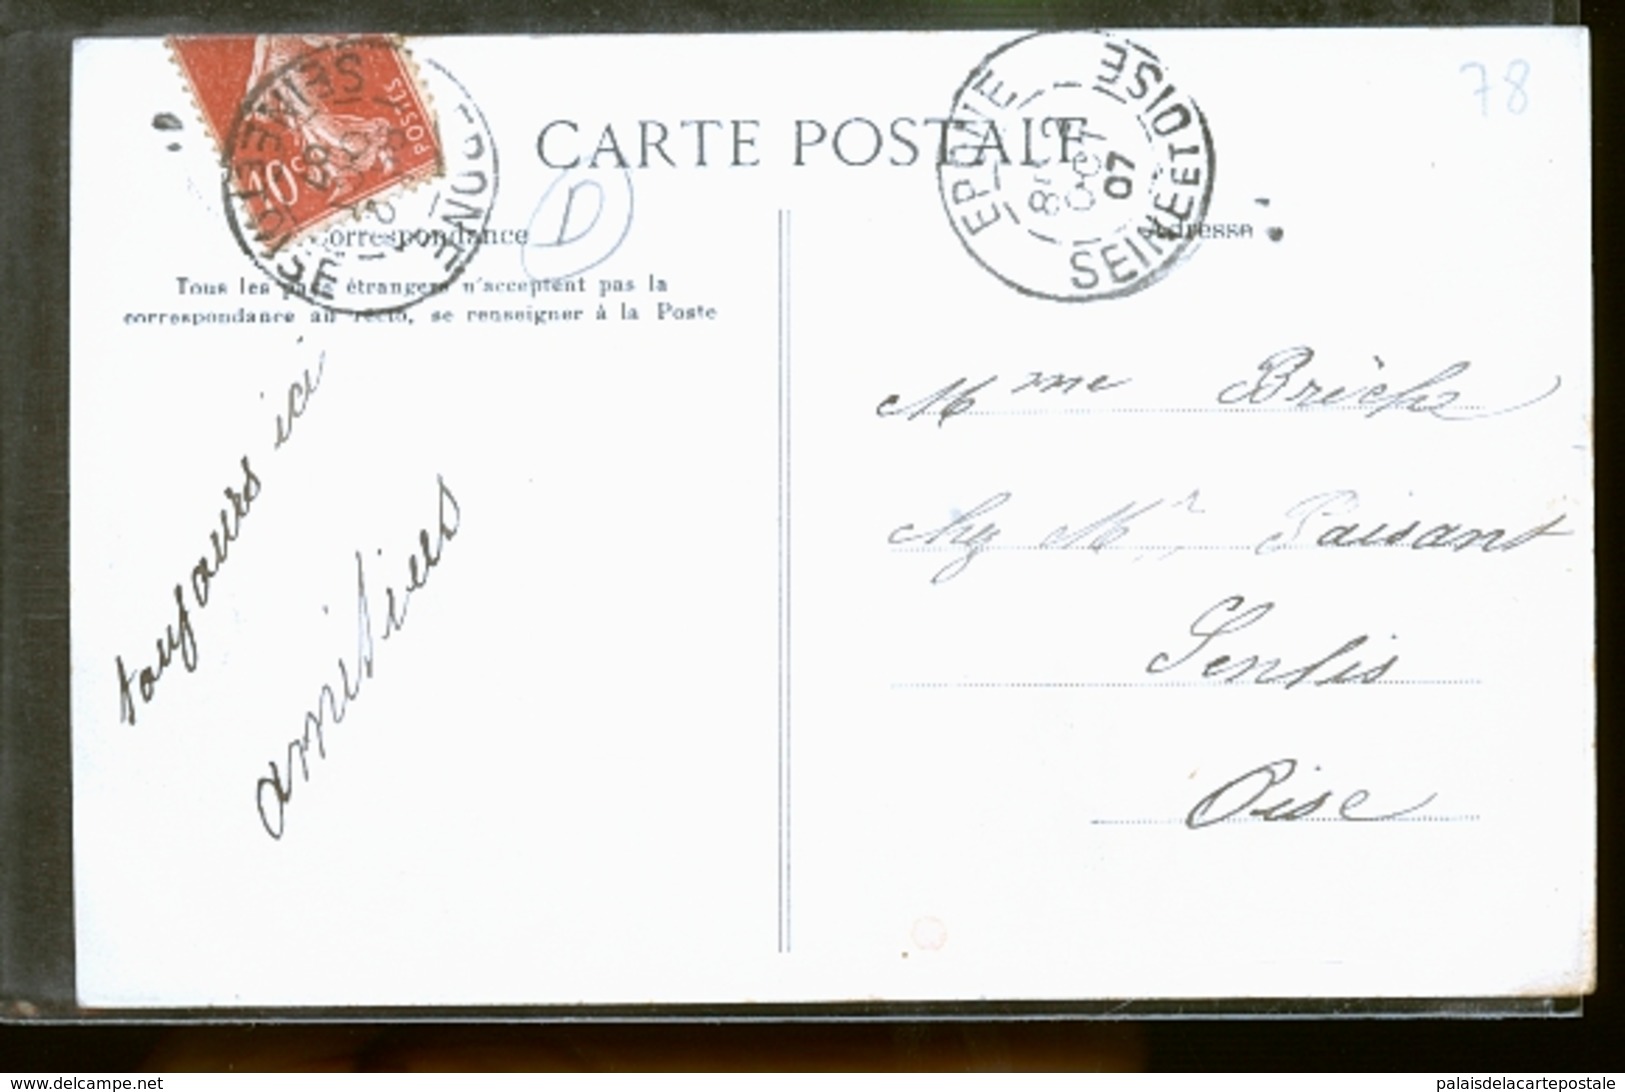 78
CARTE POSTALE
POSTES
10
EPONE
8
OCT
07
SEINE ET OISE
D
Correspondance
Adresse
Tous les pays étrangers n'acceptent pas la
correspondance au recto, se renseigner à la Poste
toujours ici
amitiées
Mme Brèche
chez Mr Paisant
Senlis
Oise
www.delcampe.net
palaisdelacartepostale